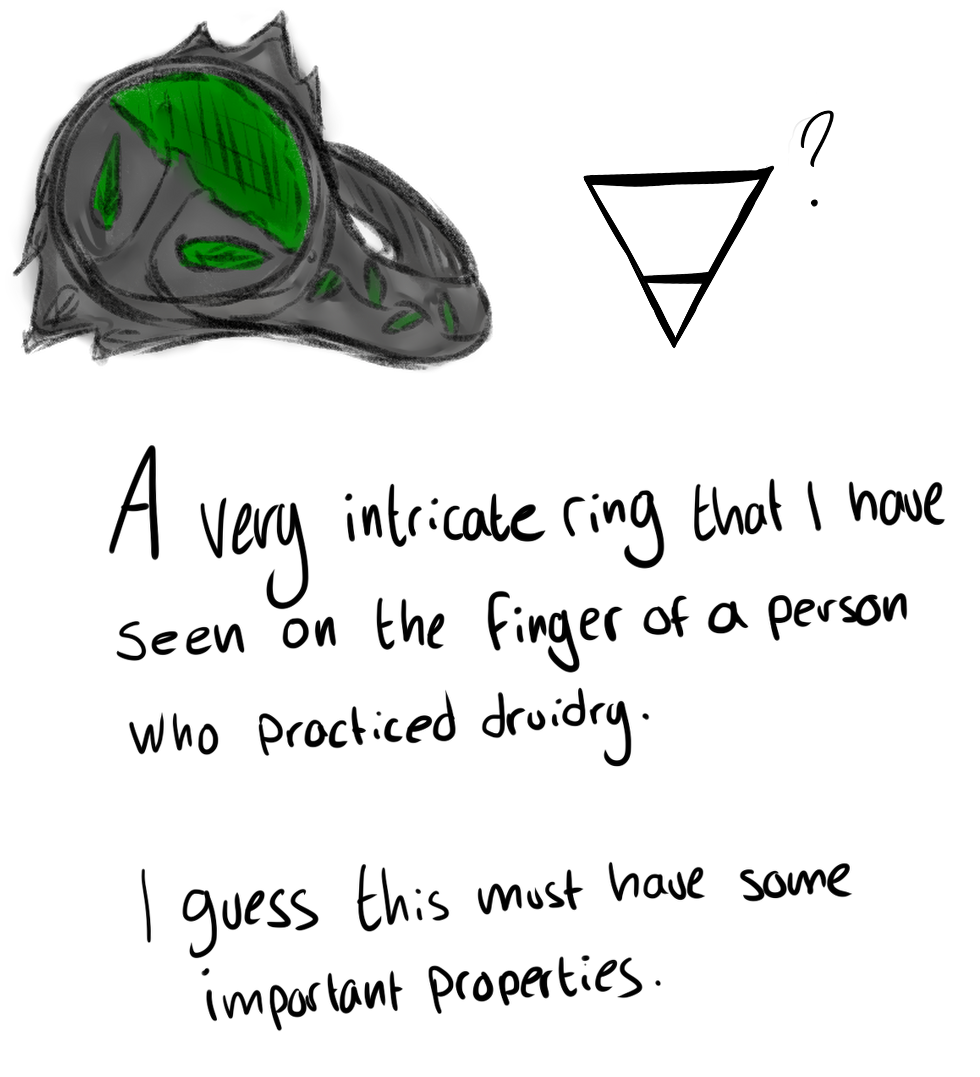 ?
A very intricate ring that I have
seen on the finger of a person
who practiced druidry.
I guess this must have some
important properties.